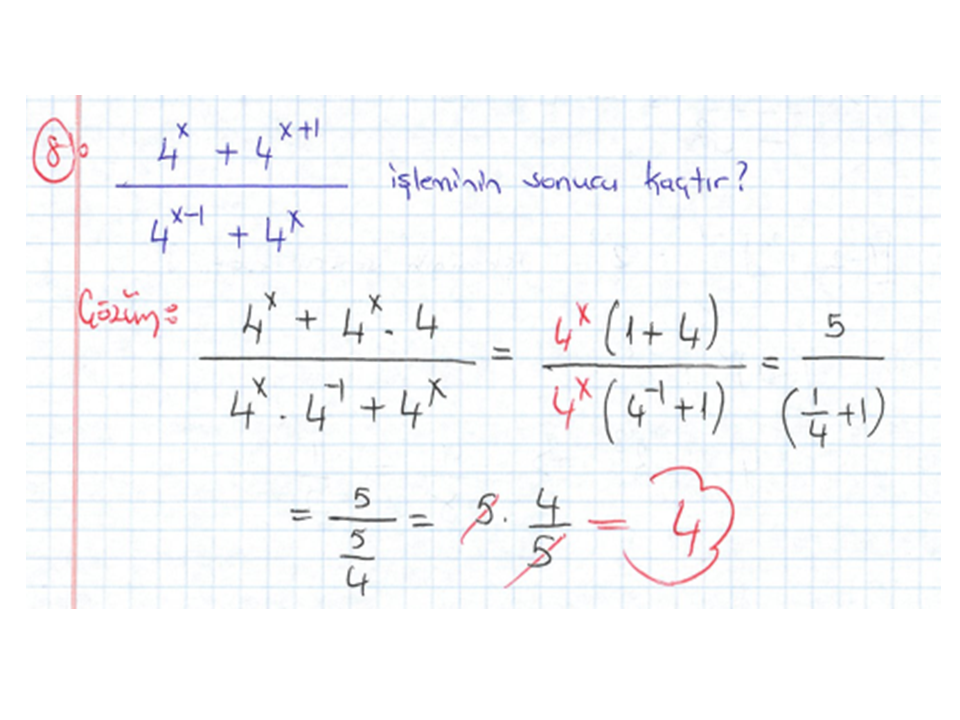 8) (4^x + 4^(x+1)) / (4^(x-1) + 4^x) işleminin sonucu kaçtır?
Çözüm: (4^x + 4^x . 4) / (4^x . 4^-1 + 4^x) = (4^x (1+4)) / (4^x (4^-1 + 1)) = 5 / (1/4 + 1)
= 5 / (5/4) = 5 . 4/5 = 4